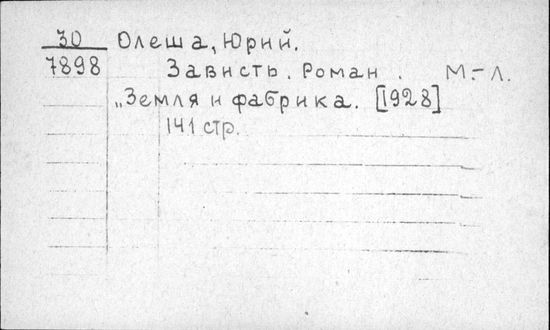 30 Олеша, Юрий.
7898 Зависть. Роман. М.-Л.
„Земля и фабрика. [1928]
141 стр.